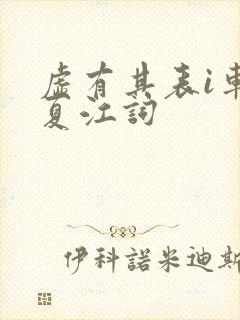 虚有其表i車
夏江詞
伊科諾米迪斯